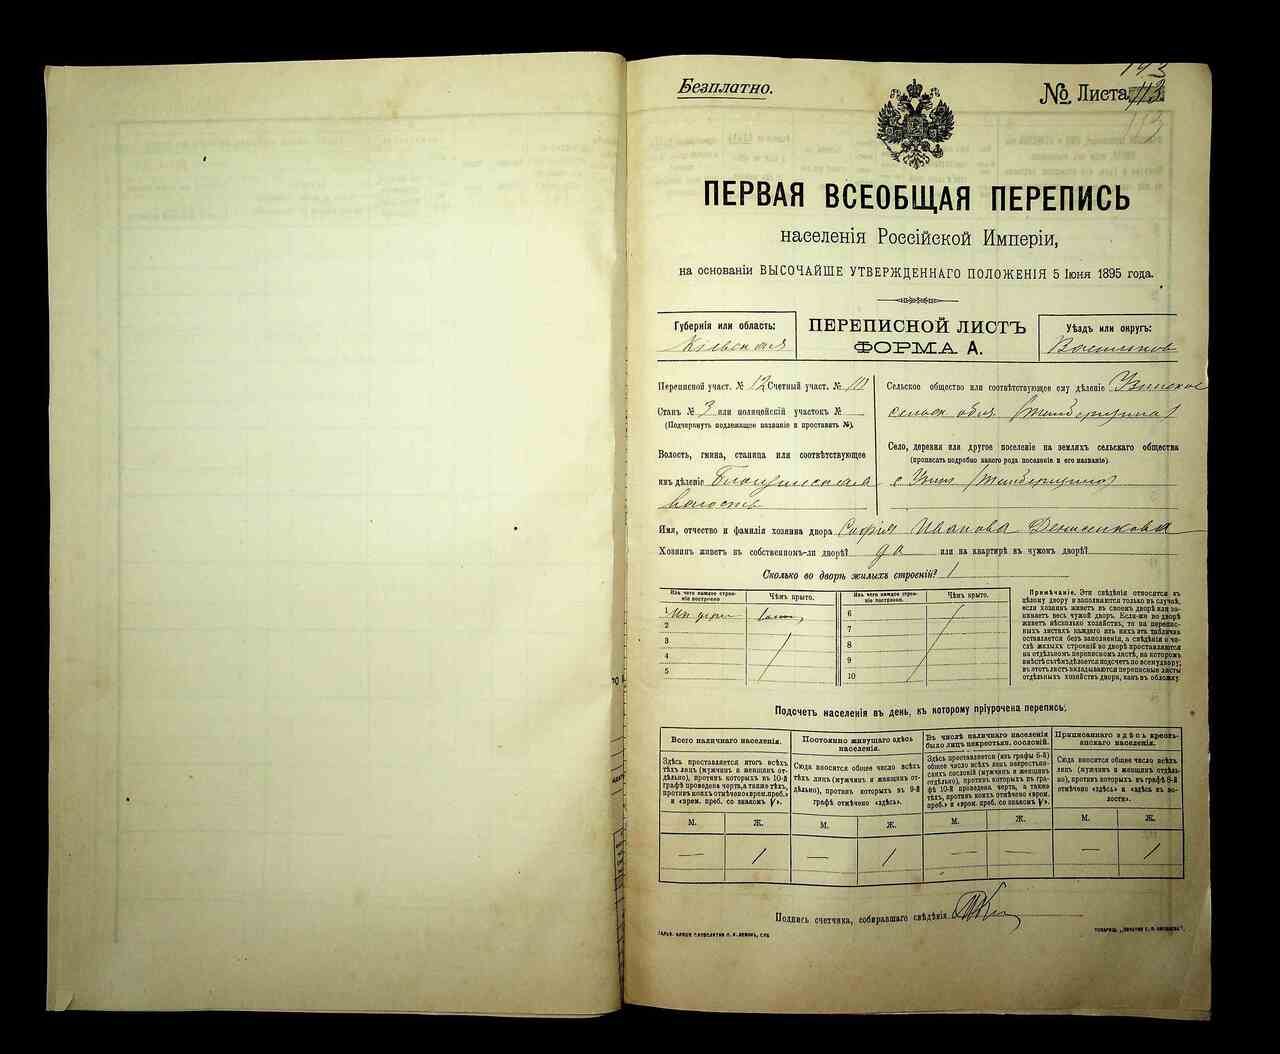 Безплатно.
№ Листа 113.
143
113
ПЕРВАЯ ВСЕОБЩАЯ ПЕРЕПИСЬ
населенія Россійской Имперіи,
на основаніи ВЫСОЧАЙШЕ УТВЕРЖДЕННАГО ПОЛОЖЕНІЯ 5 Іюня 1895 года.
Губернія или область:
Кіевская
ПЕРЕПИСНОЙ ЛИСТЪ
ФОРМА А.
Уѣздъ или округъ:
Васильков
Переписной участ. № 12 Счетный участ. № 10
Станъ № 3 или полицейскій участокъ №
(Подчеркнуть подлежащее названіе и проставить №).
Волость, гмина, станица или соотвѣтствующее
имъ дѣленіе
волость
Сельское общество или соотвѣтствующее ему дѣленіе Узинское
сельск общ
Село, деревня или другое поселеніе на земляхъ сельскаго общества
(прописать подробно какого рода поселеніе и его названіе).
с Узин
Имя, отчество и фамилія хозяина двора Софія Иванова Денисенкова
Хозяинъ живетъ въ собственномъ-ли дворѣ? да или на квартирѣ въ чужомъ дворѣ?
Сколько во дворѣ жилыхъ строеній? 1
Изъ чего каждое строеніе построено
Чѣмъ крыто.
Изъ чего каждое строеніе построено.
Чѣмъ крыто.
1 Из дерев
2
3
4
5
6
7
8
9
10
Примѣчаніе. Эти свѣдѣнія относятся къ
цѣлому двору и заполняются только въ случаѣ,
если хозяинъ живетъ въ своемъ дворѣ или занимаетъ
весь чужой дворъ. Если-же во дворѣ
живетъ нѣсколько хозяйствъ, то на переписныхъ
листахъ каждаго изъ нихъ эта табличка
оставляется безъ заполненія, а свѣдѣнія о числѣ
жилыхъ строеній во дворѣ проставляются
на отдѣльномъ переписномъ листѣ, на которомъ
вмѣстѣ съ тѣмъ дѣлается подсчетъ по всему двору;
въ этотъ листъ вкладываются переписные листы
отдѣльныхъ хозяйствъ двора, какъ въ обложку.
Подсчетъ населенія въ день, къ которому пріурочена перепись:
Всего наличнаго населенія.
Здѣсь проставляется итогъ всѣхъ
тѣхъ лицъ (мужчинъ и женщинъ отдѣльно),
противъ которыхъ въ 10-й
графѣ проведена черта, а также тѣхъ,
противъ коихъ отмѣчено «врем. преб.»
и «врем. преб. со знакомъ V».
Постоянно живущаго здѣсь
населенія.
Сюда вносится общее число всѣхъ
тѣхъ лицъ (мужчинъ и женщинъ отдѣльно),
противъ которыхъ въ 9-й
графѣ отмѣчено «здѣсь».
Въ числѣ наличнаго населенія
было лицъ некрестьян. сословій.
Здѣсь проставляется (изъ графы 5-й)
общее число всѣхъ лицъ некрестьянскихъ
сословій (мужчинъ и женщинъ
отдѣльно), противъ которыхъ въ графѣ
10-й проведена черта, а также
тѣхъ, противъ коихъ отмѣчено «врем.
преб.» и «врем. преб. со знакомъ V».
Приписаннаго здѣсь крестьянскаго
населенія.
Сюда вносится общее число всѣхъ
лицъ (мужчинъ и женщинъ отдѣльно),
противъ которыхъ въ графѣ 8-й
отмѣчено «здѣсь» и «здѣсь въ волости».
М. Ж. М. Ж. М. Ж. М. Ж.
— 1 — 1 — — — 1
Подпись счетчика, собиравшаго свѣдѣнія